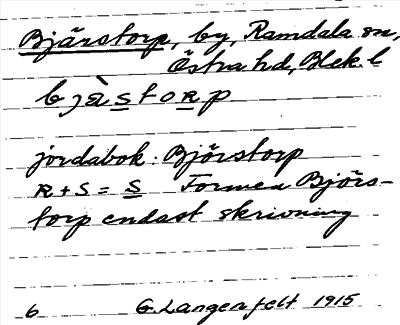 Bjärstorp, by, Ramdala sn,
Östra hd, Blek. l
bjàstorp
jordabok: Björstorp
R + S = S Formen Björs-
torp endast skrivning
6 G. Langenfelt 1915